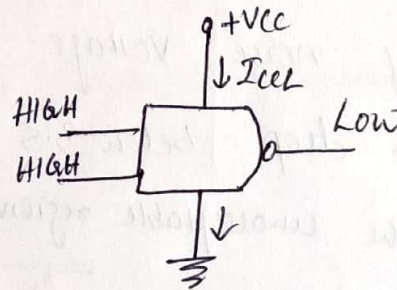 +VCC
ICCL
HIGH
HIGH
LOW